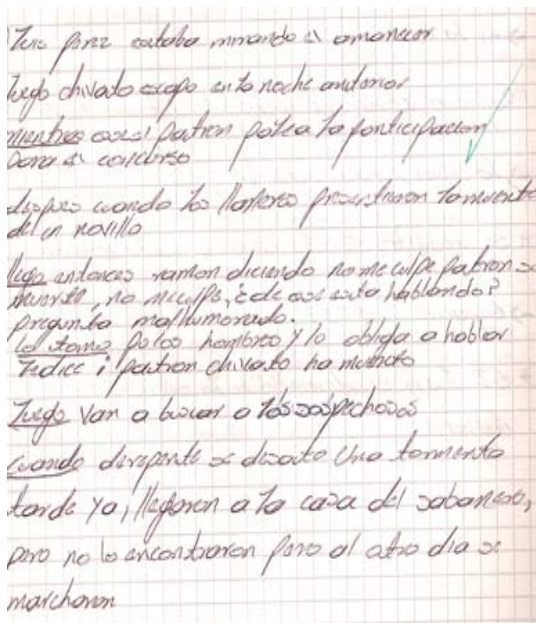 Luis perez estaba mirando el amanecer
luego chivato escapo en la noche anterior
mientras ese el patron pelea la participacion
para el concurso
despues cuando los llaneros presentiaron la muerte
de un novillo
llego entonces ramon diciendo no me culpe patron su
muerte, no me culpe, ¿de que esta hablando?
pregunta malhumorado.
lo tomo polos hombros y lo obliga a hablar
le dice ¡ patron chivato ha muerto
Luego van a buscar a los sospechosos
cuando derepente se desato una tormenta
tarde ya, llegaron a la casa del sabanero,
pero no lo encontraron pero al otro dia se
marcharon